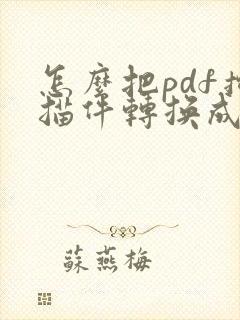 怎麼把pdf掃
描件轉換成
蘇燕梅